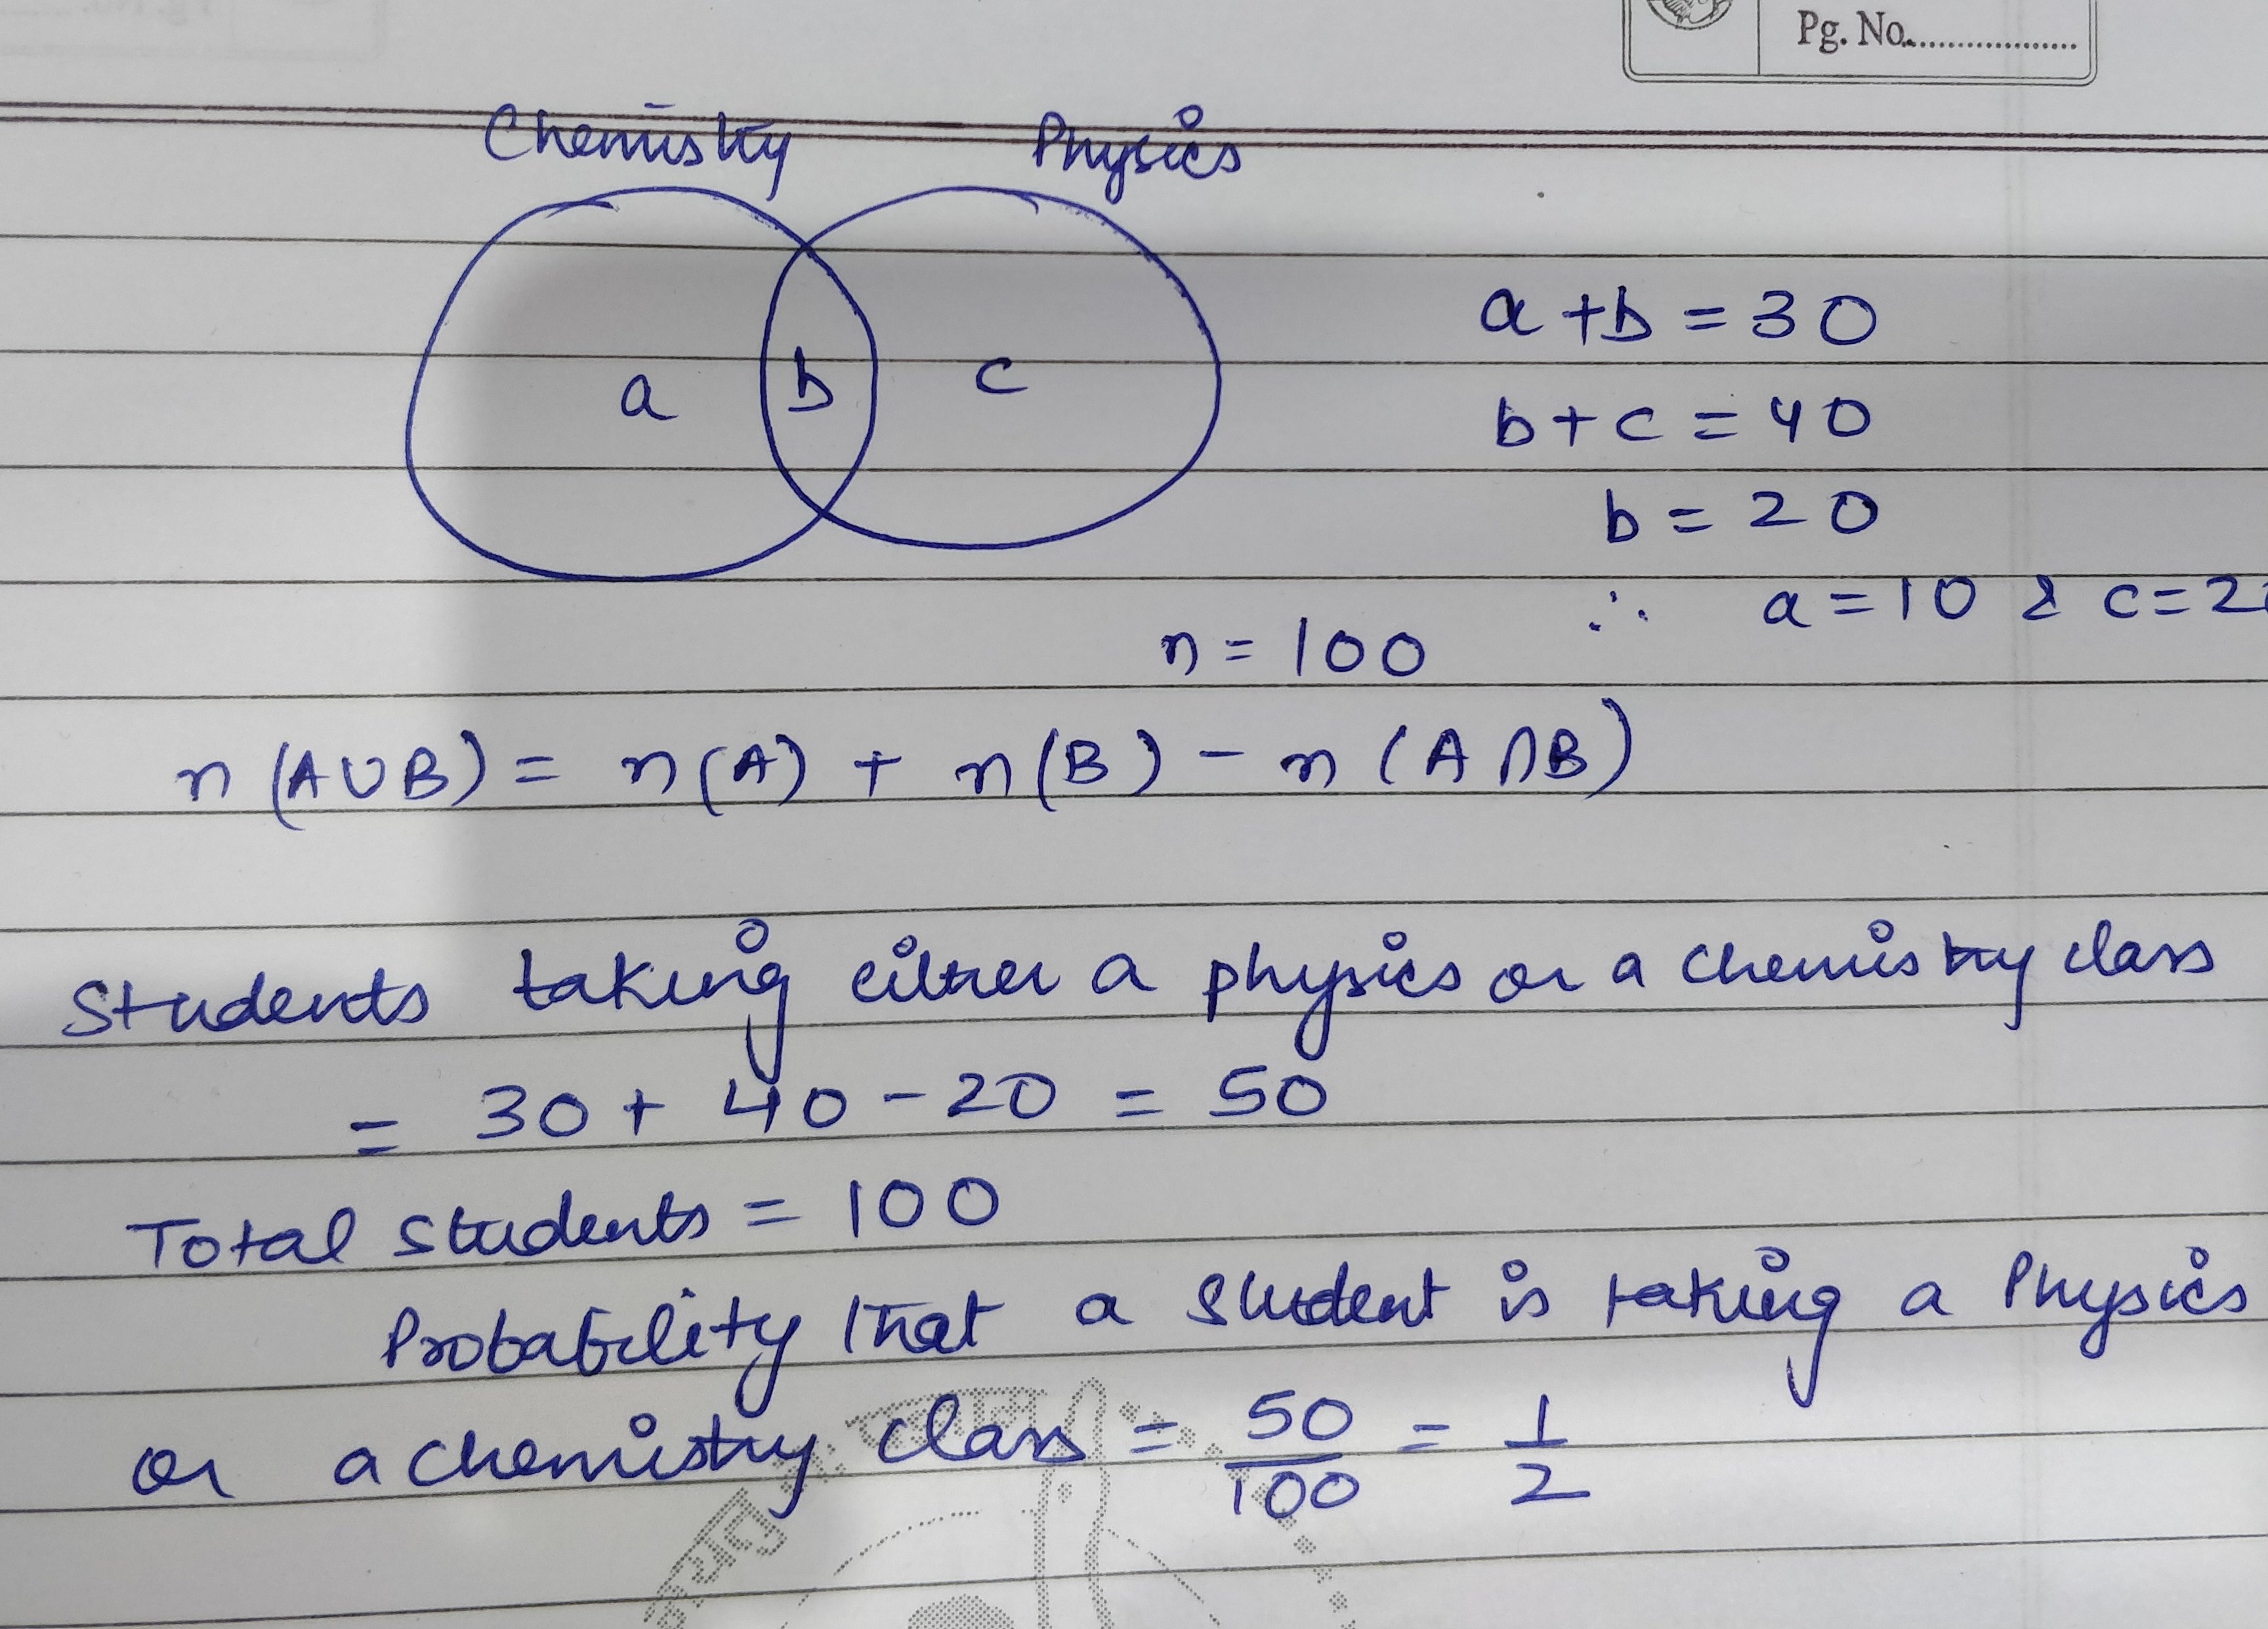 Pg. No.
Chemistry Physics
a b c
a + b = 30
b + c = 40
b = 20
∴ a = 10 & c = 2
n = 100
n (A∪B) = n(A) + n(B) - n (A∩B)
Students taking either a physics or a chemistry class
= 30 + 40 - 20 = 50
Total students = 100
Probability that a student is taking a Physics
or a chemistry class = 50/100 = 1/2